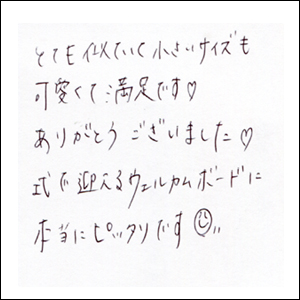 とても似ていて小さいサイズも
可愛くて満足です♡
ありがとうございました♡
式で迎えるウェルカムボードに
本当にピッタリです☺,,